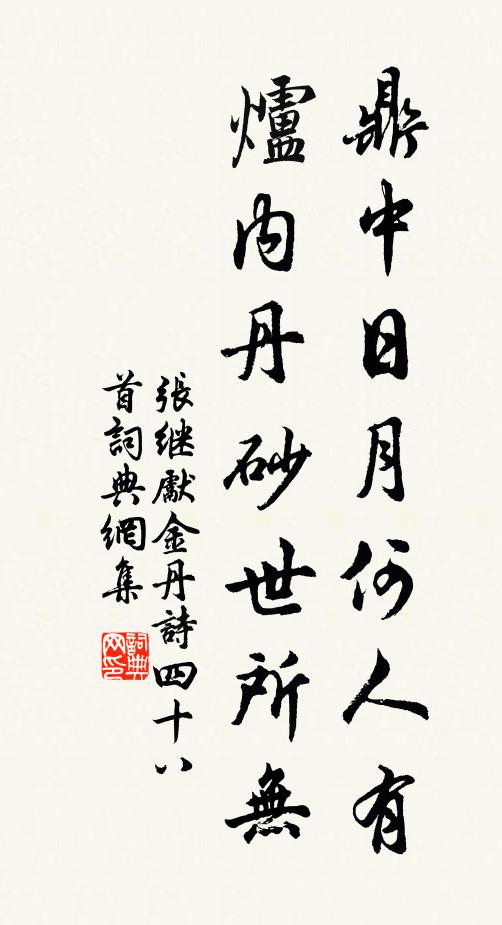 鼎中日月何人有
爐内丹砂世所無
張继獻金丹詩四十八
首詞典網集